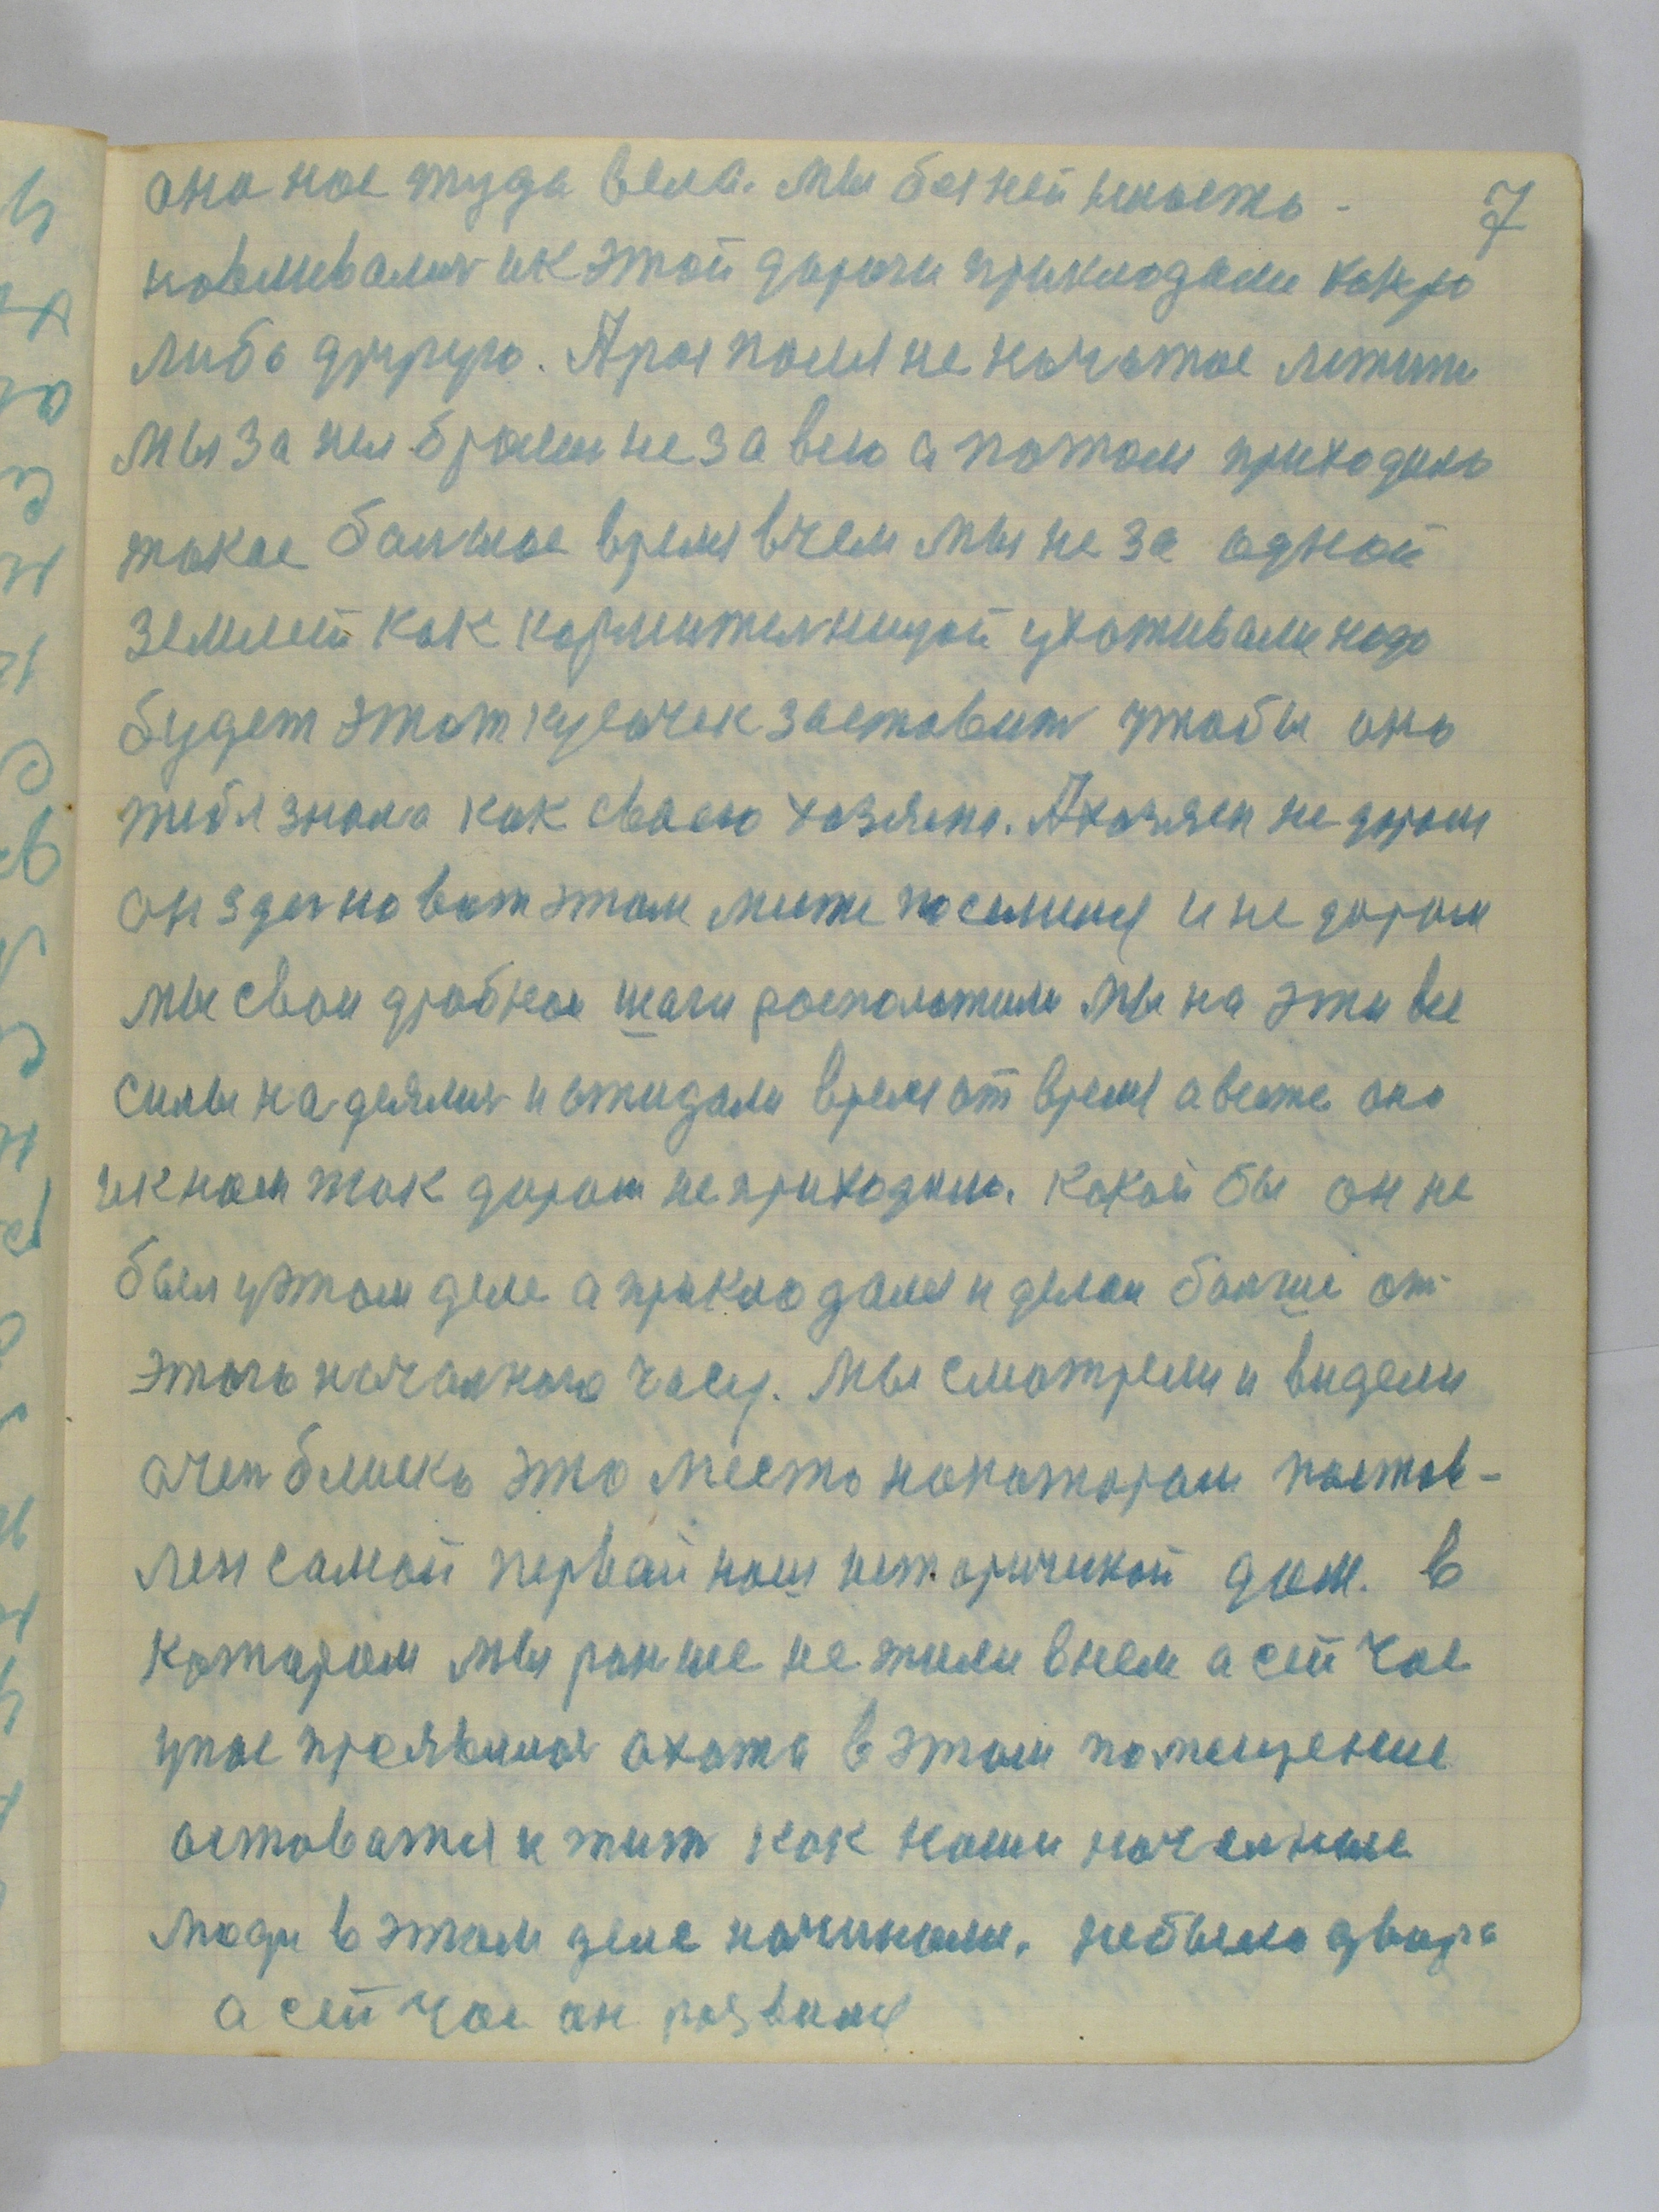 7
она нас туда вела. мы бы ней
новливались ик этой дароги прикладали какую
либо другую. А раз поля не начатае
мы за нея брались не за всю а патом приходила
такае балшое время в чем мы не за адной
землей как кормителницай ухаживали надо
будет этат кусочек заставить чтобы она
тибя знала как сваею хазяена. А хазяен не даром
он здесь на вот этам месте поселился и не даром
мы свои дробнаи шаги распалажили мы на эти все
силы надеялись и ажидали время от время а всеже ано
ик нам так даром не приходила. какой бы он не
был у этом деле а прикладался и делал балше от
этого началного часу. мы сматрели и видели
очен блиско это место накатаром постав-
лен самай первай наш исторический дом. в
катаром мы ранше не жили в нем а сей час
у нас праявилась ахота в этом помещение
аставатся и жить как наши началные
люди в этом деле начинали. небыло двара
а сей час он развился